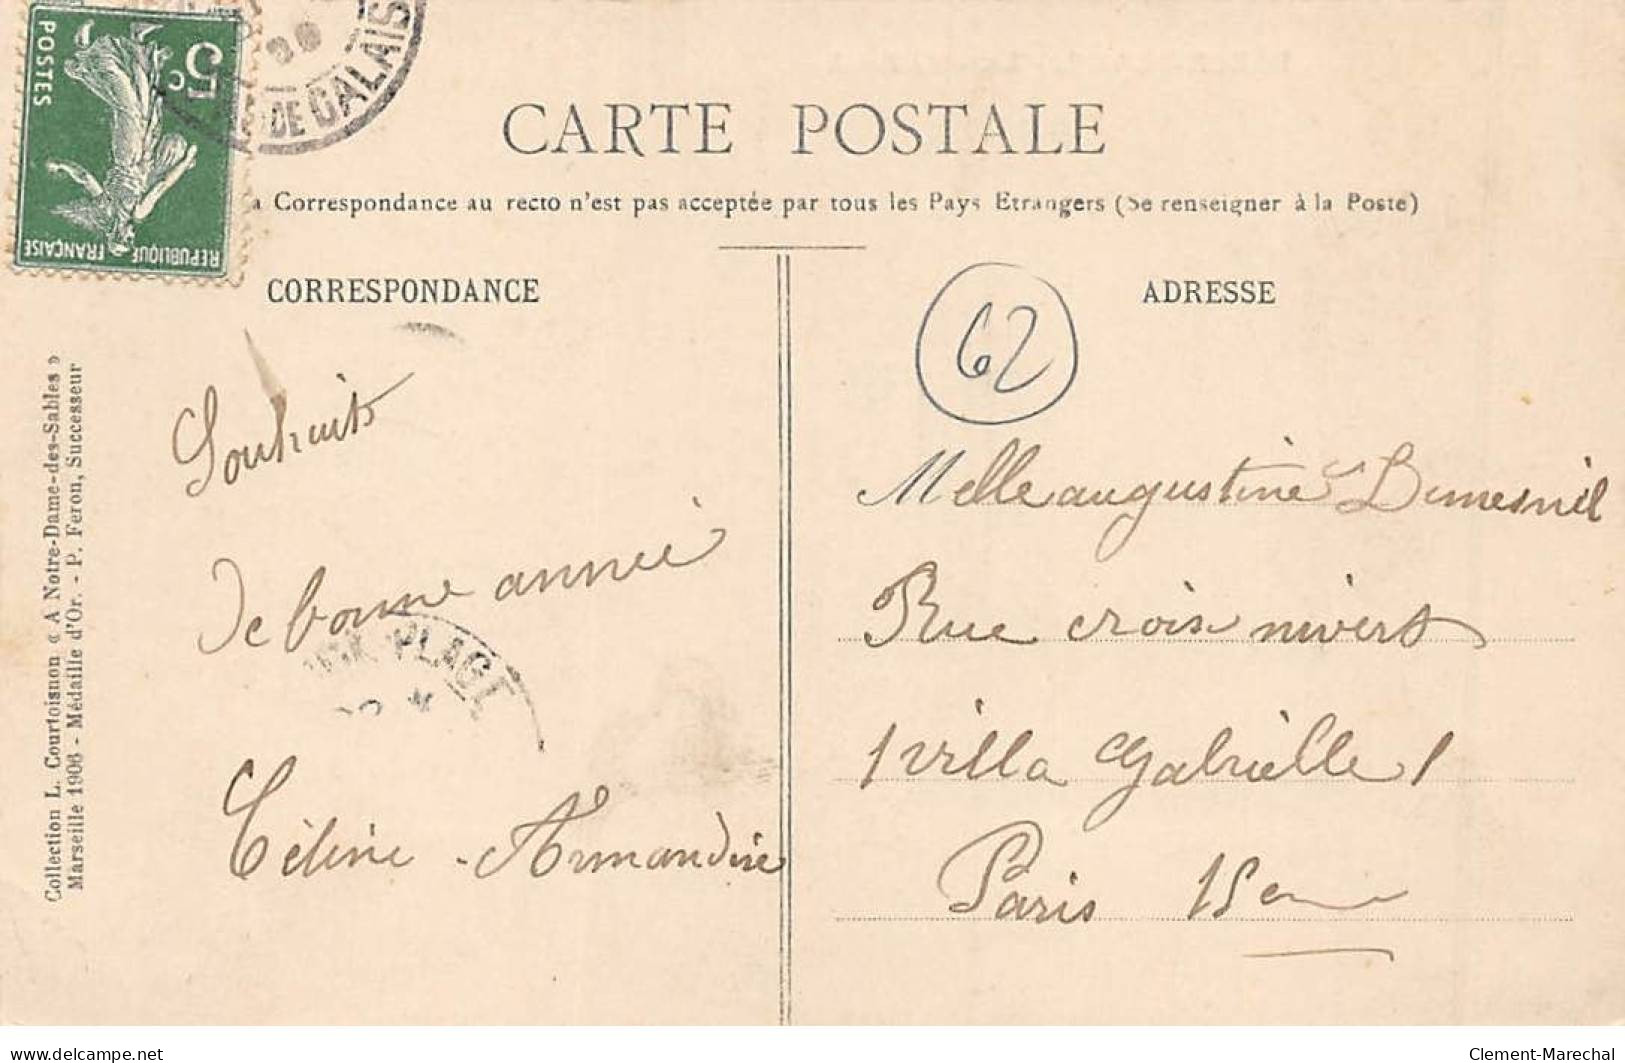 POSTES
5c
REPUBLIQUE FRANÇAISE
DE CALAIS
CARTE POSTALE
a Correspondance au recto n'est pas acceptée par tous les Pays Etrangers (Se renseigner à la Poste)
CORRESPONDANCE
Souhaits
de bonne année
PLAGE
Céline - Armandine
Collection L. Courtoisnon « A Notre-Dame-des-Sables »
Marseille 1906 - Médaille d'Or. - P. Feron, Successeur
ADRESSE
62
Melle augustine Dumesnil
Rue croix nivert
1 villa Gabrielle 1
Paris 15em
delcampe.net
Clement-Marechal